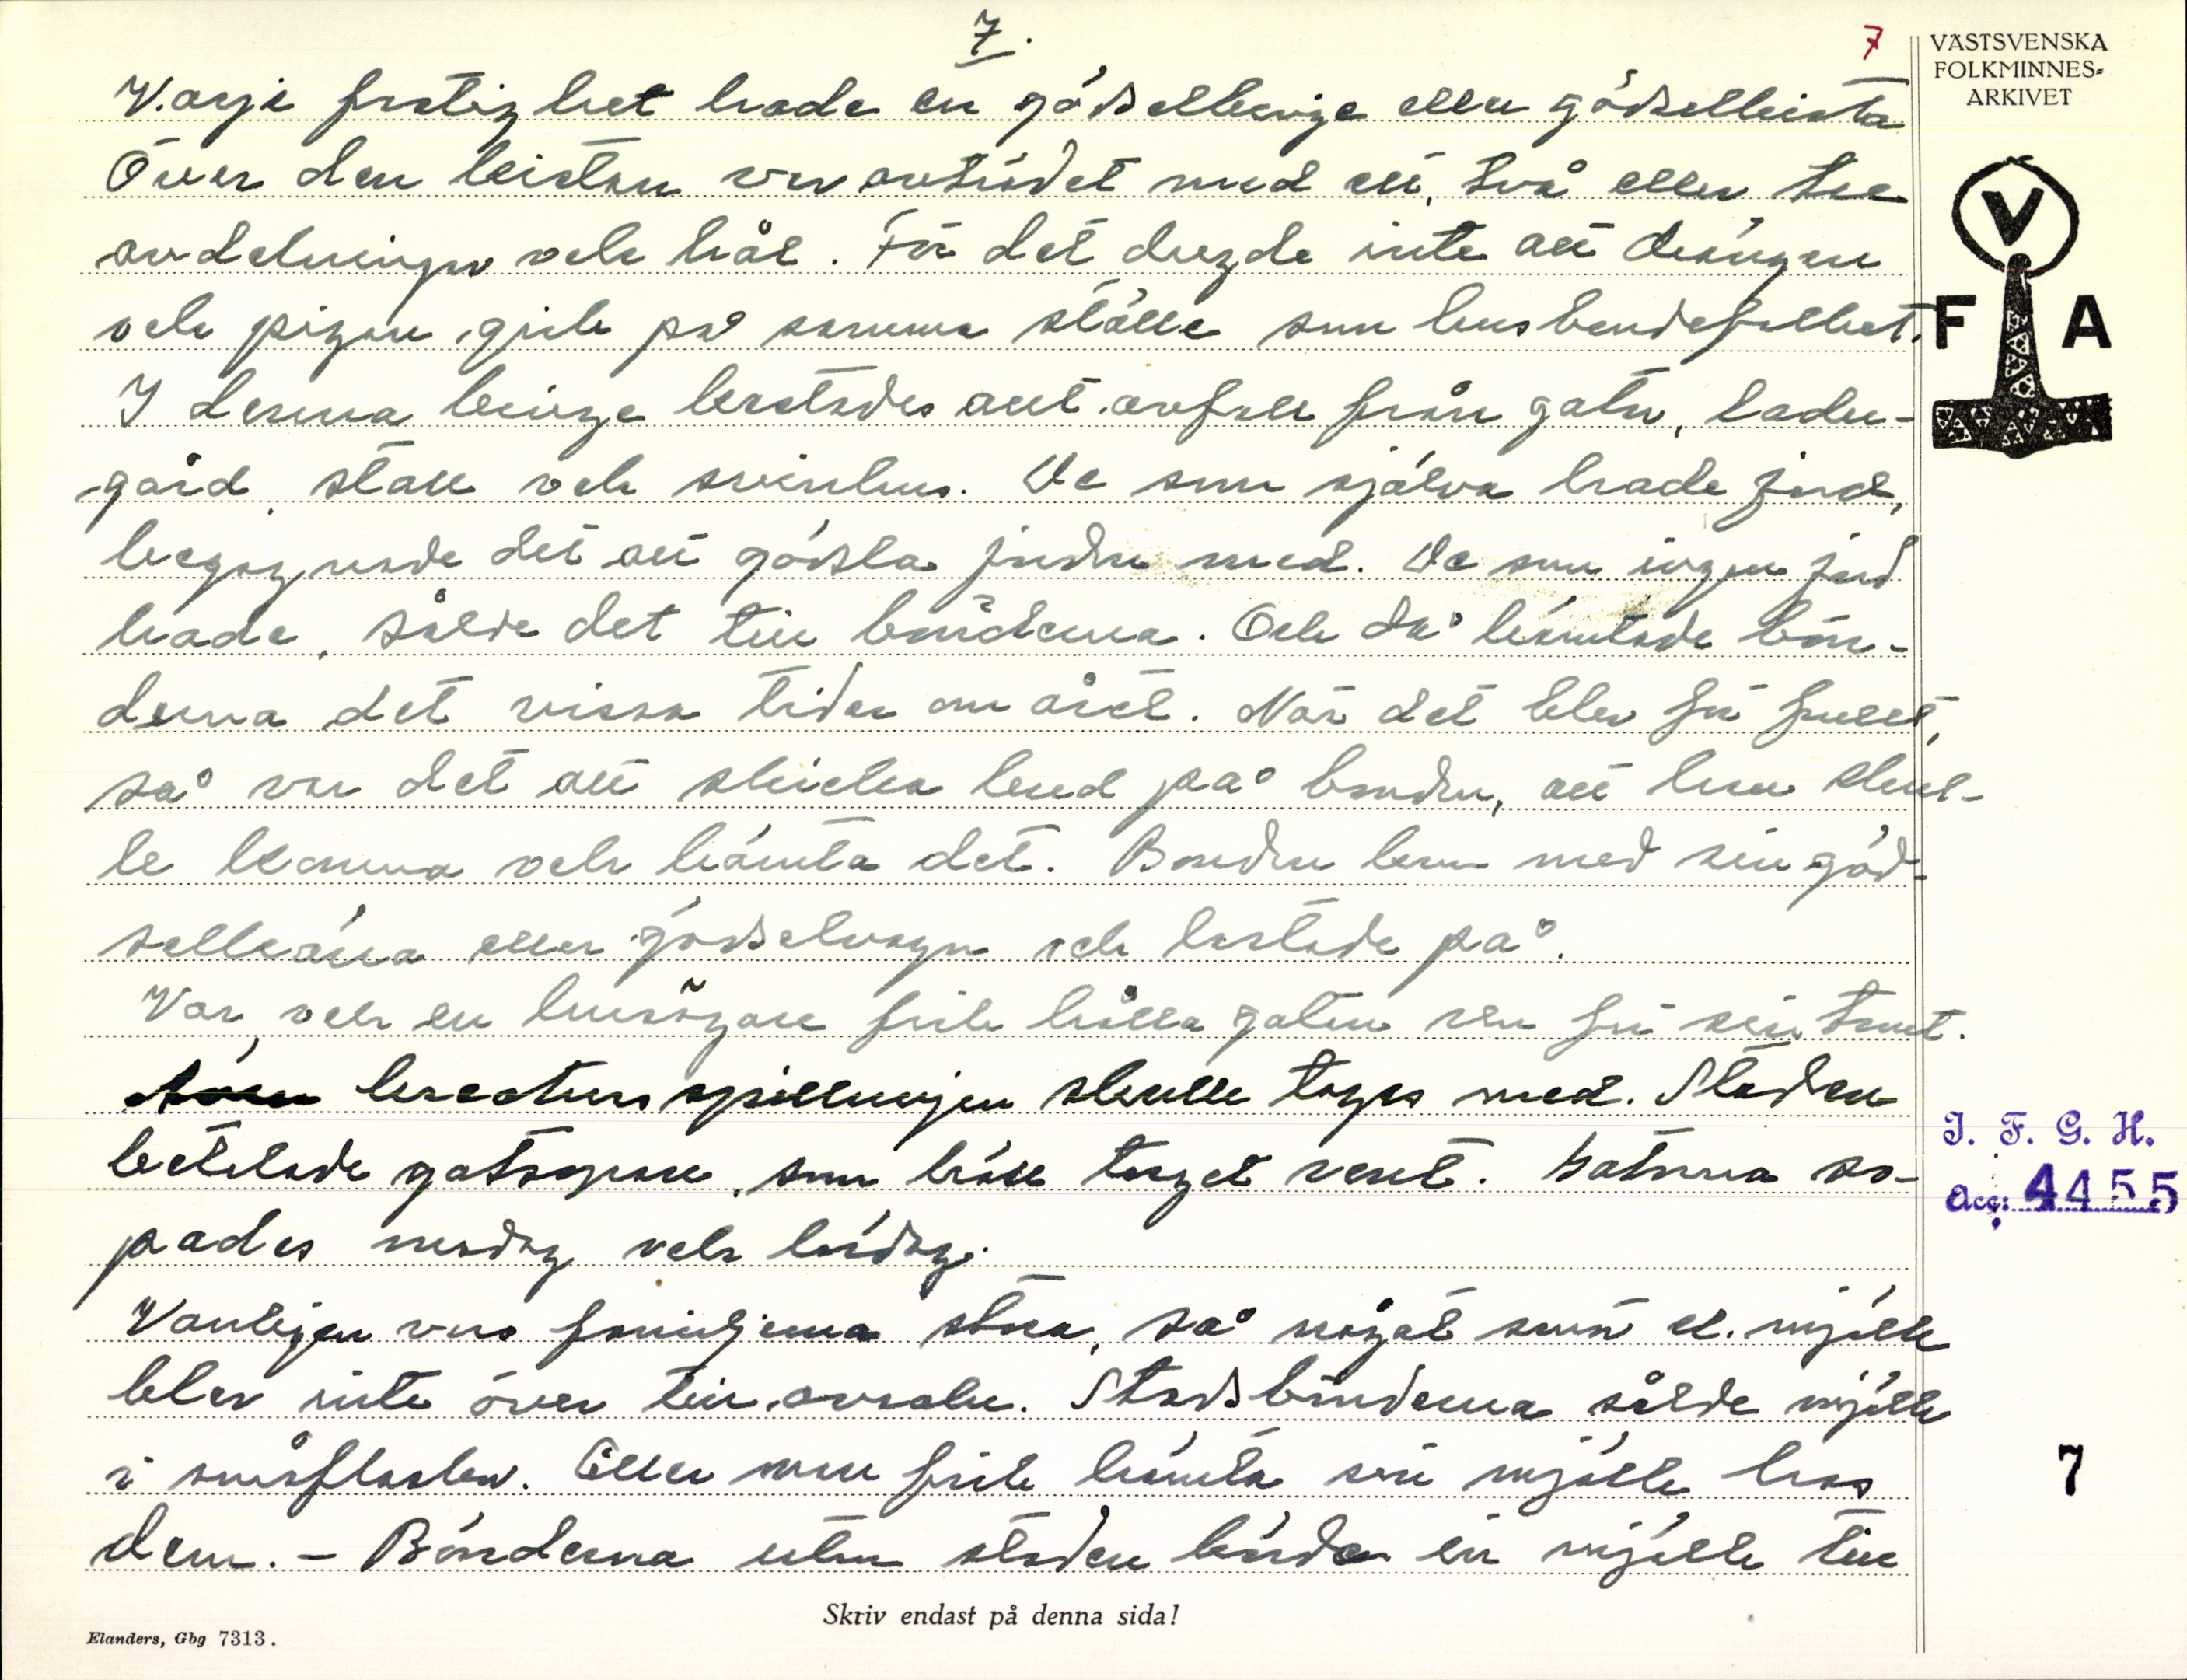 7.
7
VÄSTSVENSKA
FOLKMINNES-
ARKIVET
Varje fastighet hade en gödselbinge eller gödselkista
Över den kistan var avträdet med ett, två eller tre
avdelningar och hål. För det dugde inte att drängen
och pigan gick på samma ställe som husbondefolket.
I denna binge kastades allt avfall från gata, ladu-
gård, stall och svinhus. De som själva hade jord,
begagnade det att gödsla jorden med. De som ingen jord
hade, sålde det till bönderna. Och då hämtade bön-
derna det vissa tider om året. När det blev för fullt,
så var det att skicka bud på bonden, att han skul-
le komma och hämta det. Bonden kom med sin göd-
selkärra eller gödselvagn och lastade på.
Var och en husägare fick hålla gatan ren för sin tomt.
kreatursspillningen skulle tagas med. Staden
betalade gatsopare, som höll torget rent. Gatorna so-
pades onsdag och lördag.
Vanligen var familjerna stora, så något smör el. mjölk
blev inte över till avsalu. Stadsbönderna sålde mjölk
i småflaskor. Eller man fick hämta sin mjölk hos
dem. – Bönderna utom staden körde in mjölk till
V
F A
I. F. G. H.
Acc: 4455
7
Skriv endast på denna sida!
Elanders, Gbg 7313.